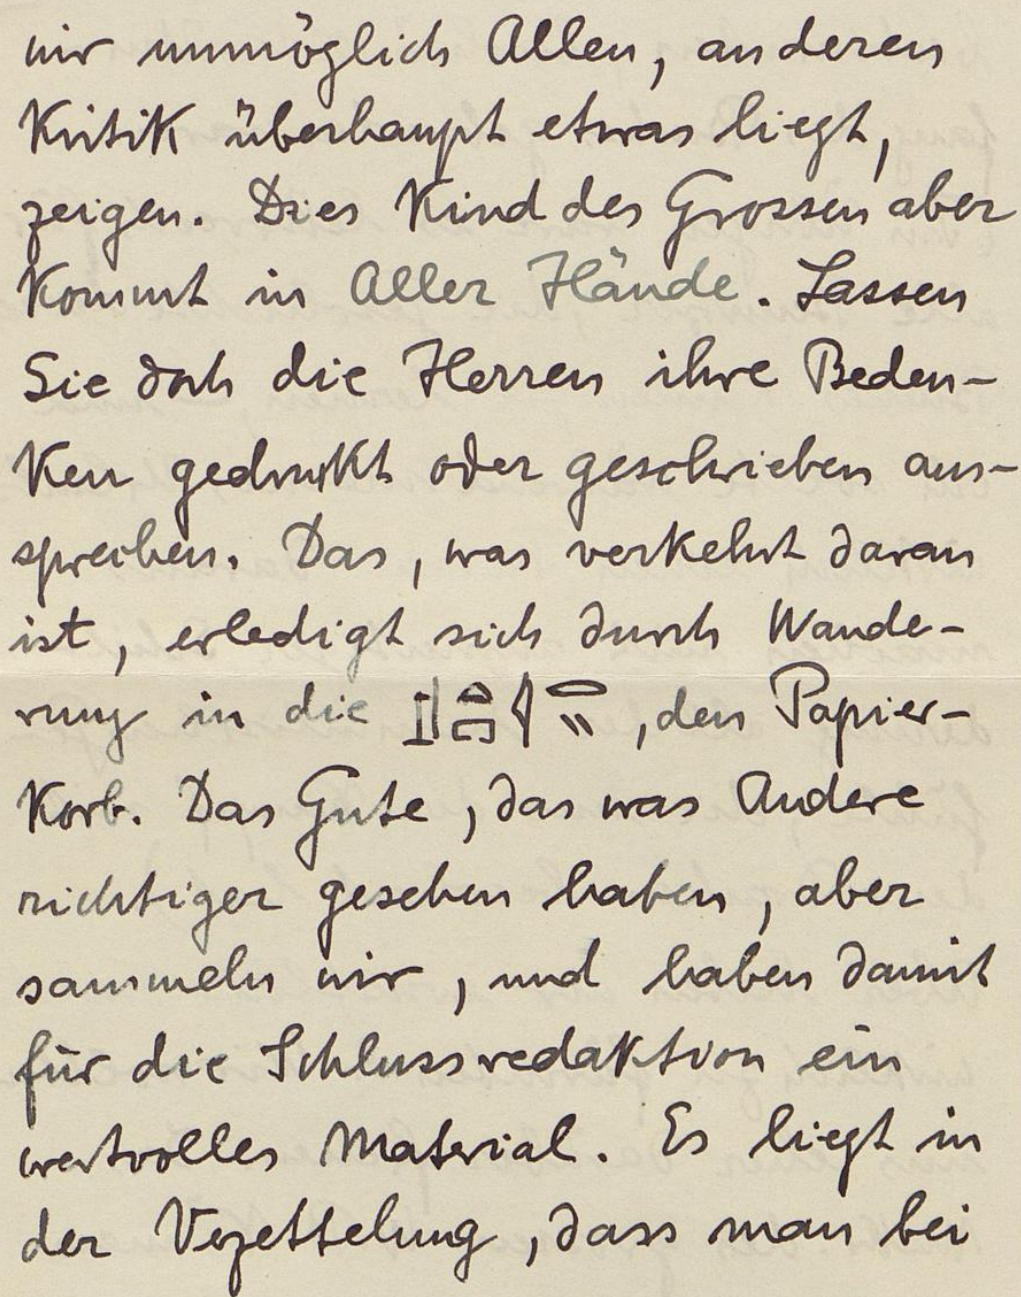 wir unmöglich Allen, an deren
Kritik überhaupt etwas liegt,
zeigen. Dies Kind des Grossen aber
kommt in Aller Hände. Lassen
Sie doch die Herren ihre Beden-
ken gedruckt oder geschrieben aus-
sprechen. Das, was verkehrt daran
ist, erledigt sich durch Wande-
rung in die , den Papier-
korb. Das Gute, das was Andere
richtiger gesehen haben, aber
sammeln wir, und haben damit
für die Schlussredaktion ein
wertvolles Material. Es liegt in
der Verzettelung, dass man bei